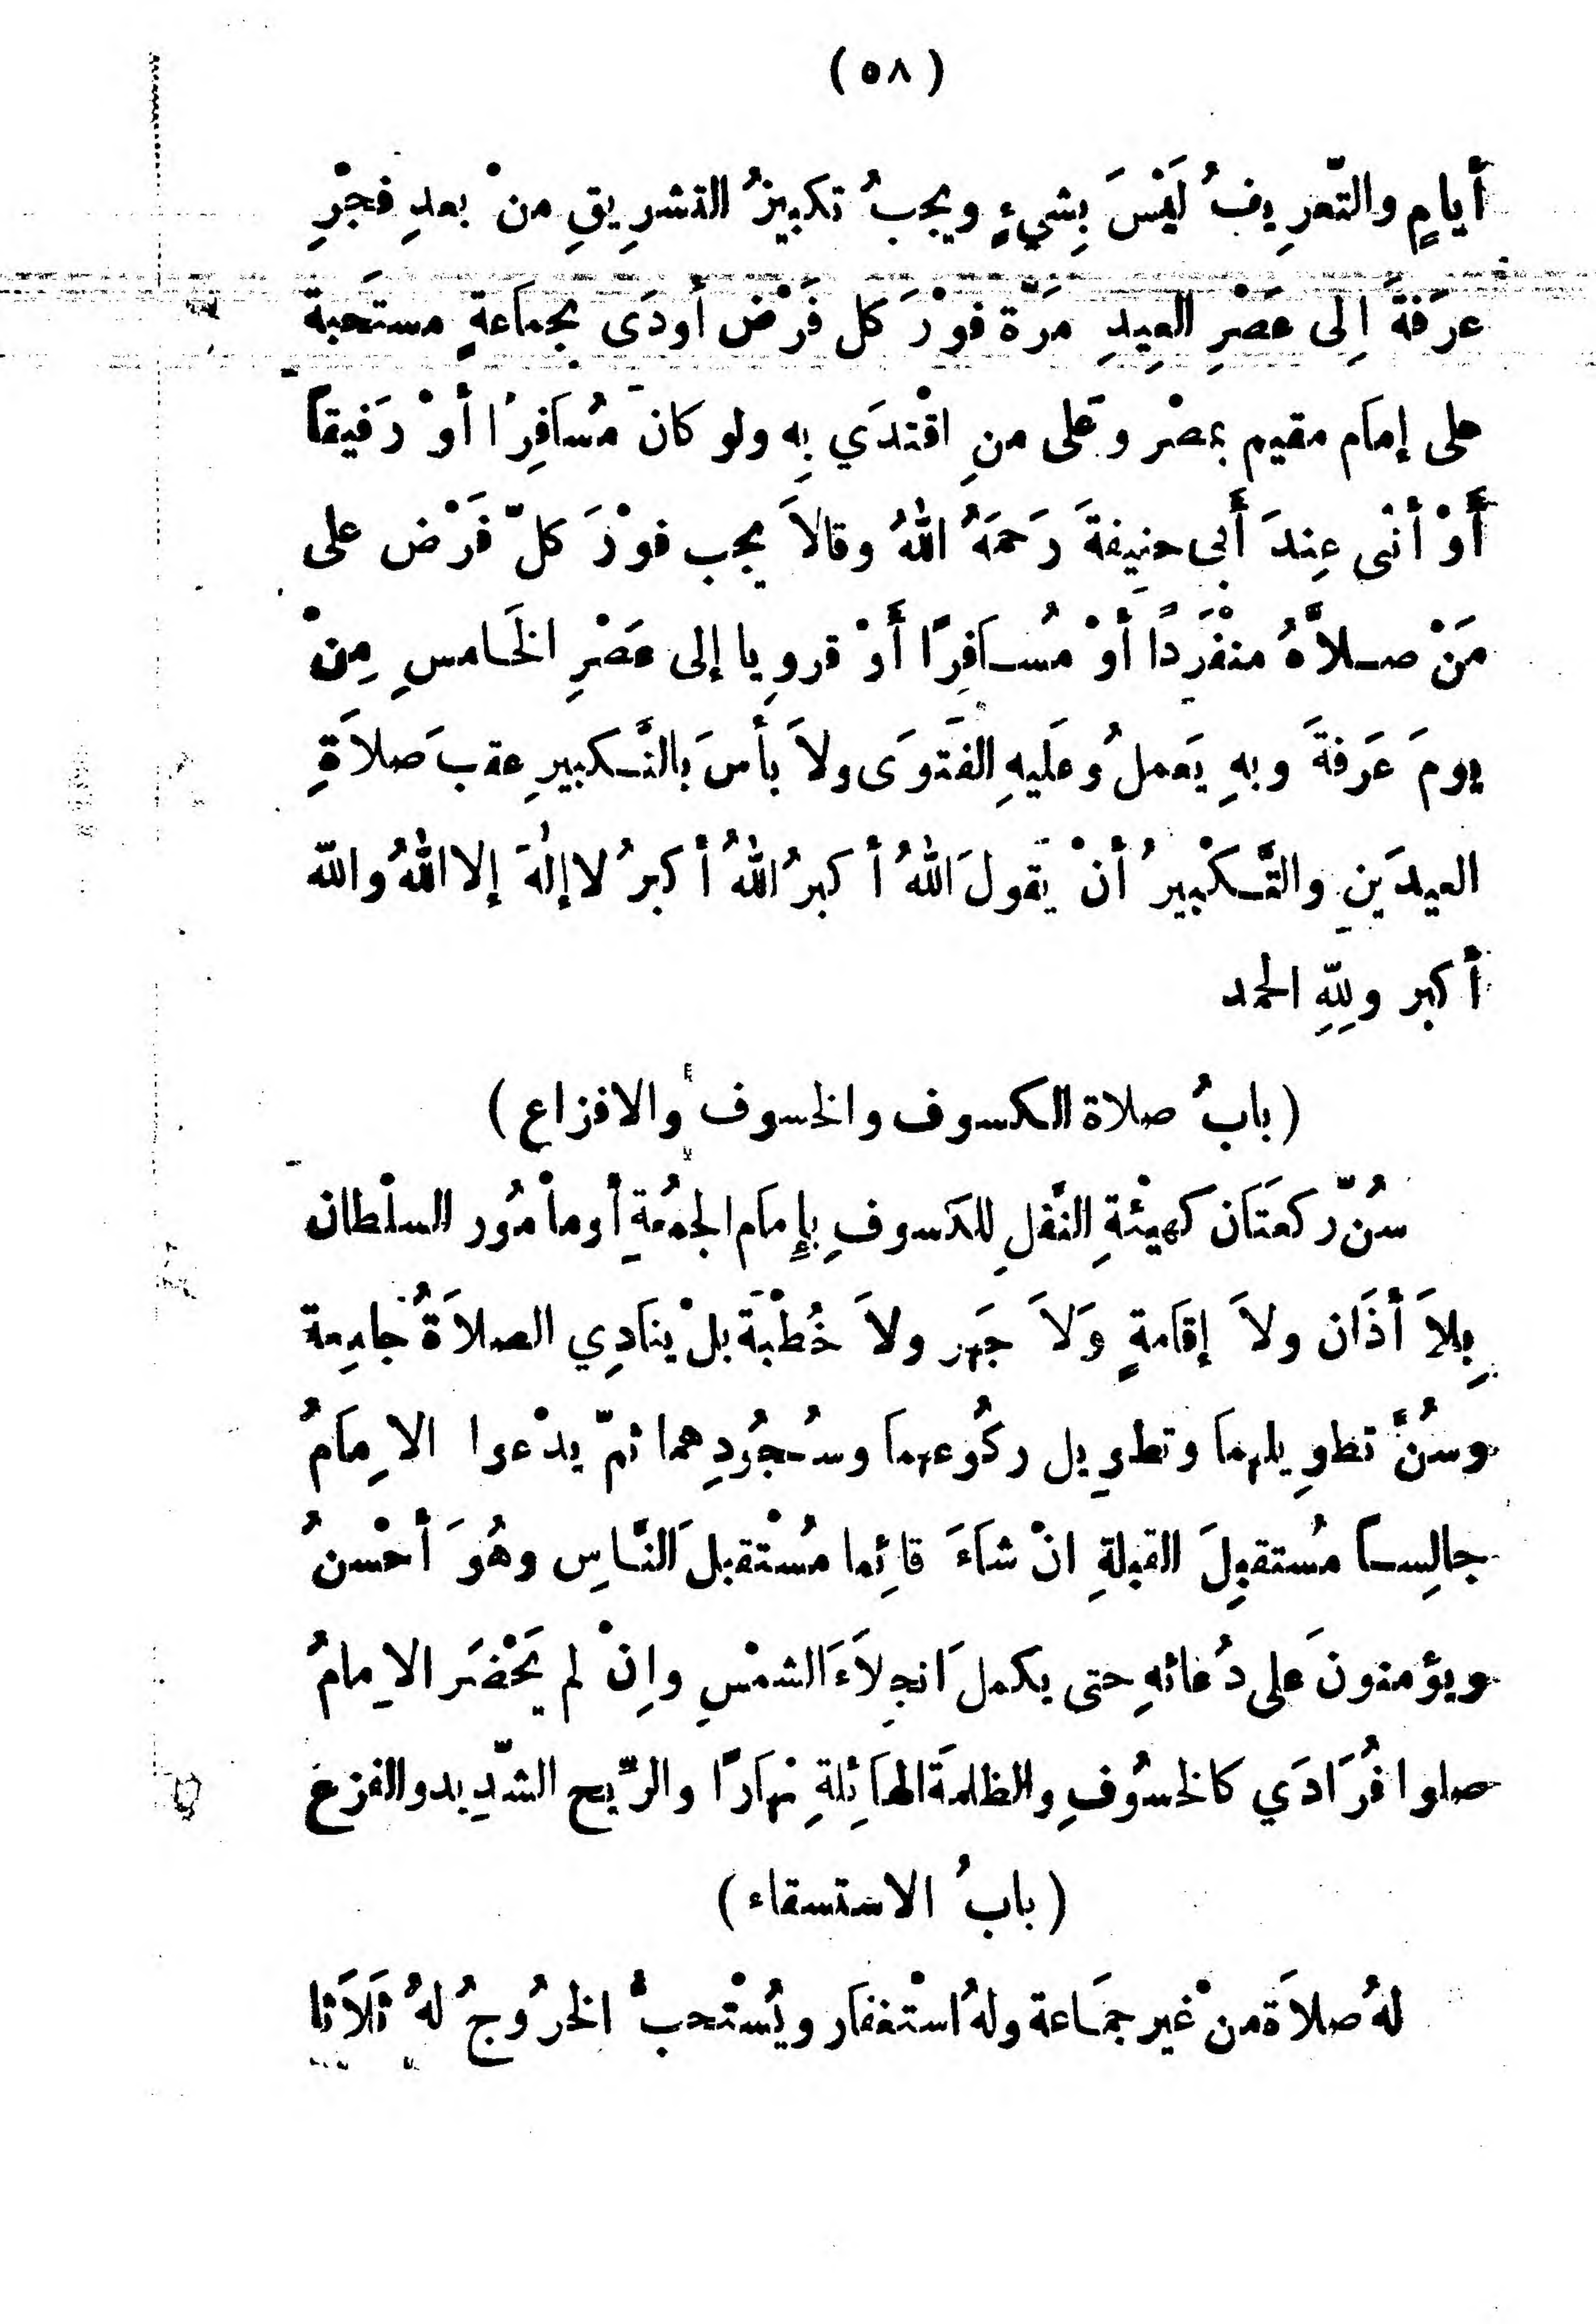 (٥٨)
أيامٍ والتّعرِيفُ لَيْسَ بِشيءٍ ويجبُ تكبيرُ التشرِيقِ منْ بعدِ فجْرِ
عرَفةَ اِلى عَصْرِ العِيدِ مَرّة فوْرَ كل فَرْض أودَى بجماَعةٍ مستَحبة
على إمام مقيم بمصْر وعَلى منِ اقْتدَي بِه ولو كان مُساَفِرًا أوْ رَفيقاً
أَوْ أنثى عِندَ أَبى حنِيفةَ رَحمَهُ اللهُ وقالاَ يجب فوْرَ كلّ فَرْض على
مَنْ صلاَّهُ منْفَرِدًا أوْ مُسافِرًا أَوْ قروِيا إلى عَصْرِ الخَامسِ مِنْ
يومَ عَرَفةَ وبهِ يَعملُ وعَليهِ الفَتوَى ولاَ بأسَ بالتَّكبيرِ عقبَ صلاَةِ
العيدَينِ والتَّكْبيرُ أنْ يَقولَ اللهُ أكبرُ اللهُ أكبرُ لاإلهَ إلا اللهُ والله
أكبر وللهِ الحمد
(بابُ صلاة الكسوف والخسوف والافزاع)
سُنّ ركعَتاَن كهيْئةِ النَّفلِ للكسوفِ بإِماَم الجمُعةِ أو مأمُور السلْطان
بِلاَ أذَان ولاَ إقاَمةٍ وَلاَ جَهر ولاَ خُطْبَة بلْ ينَادِي الصلاَةُ جامِعة
وسُنَّ تطوِيلهماَ وتطوِيل ركُوعهماَ وسُجُودِهما ثمّ يدْعوا الاِماَمُ
جالِساً مُستقبِلَ القبلةِ انْ شاَءَ قائِما مُسْتقبلَ النَّاسِ وهُوَ أحْسنُ
ويؤمنونَ عَلى دُعائهِ حتى يكملَ انجِلاَءَ الشمْسِ واِنْ لم يَحْضَر الاِمامُ
صلوا فُرَادَي كالخسُوفِ والظلمةَ الهاَئِلةِ نهاَرًا والرّيح الشّدِيد والفزع
(بابُ الاستسقاء)
لهُ صلاَة منْ غير جمَاعة ولهُ استْغفاَر ويُسْتحبُّ الخرُوجُ لهُ ثلاَثا